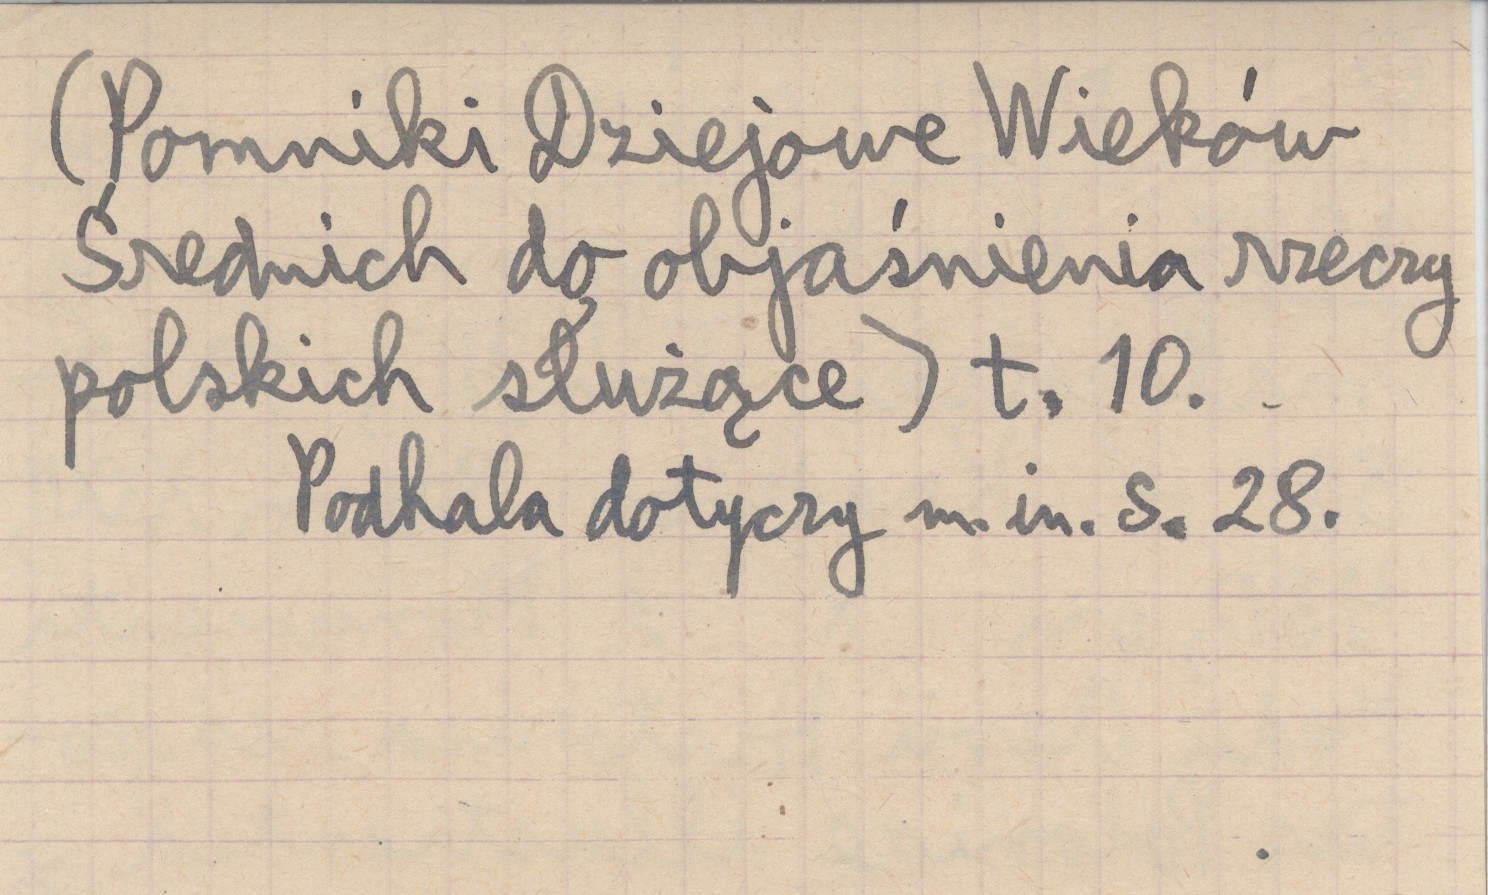 (Pomniki Dziejowe Wieków
Średnich do objaśnienia rzeczy
polskich służące) t. 10.
Podhala dotyczy m. in. s. 28.